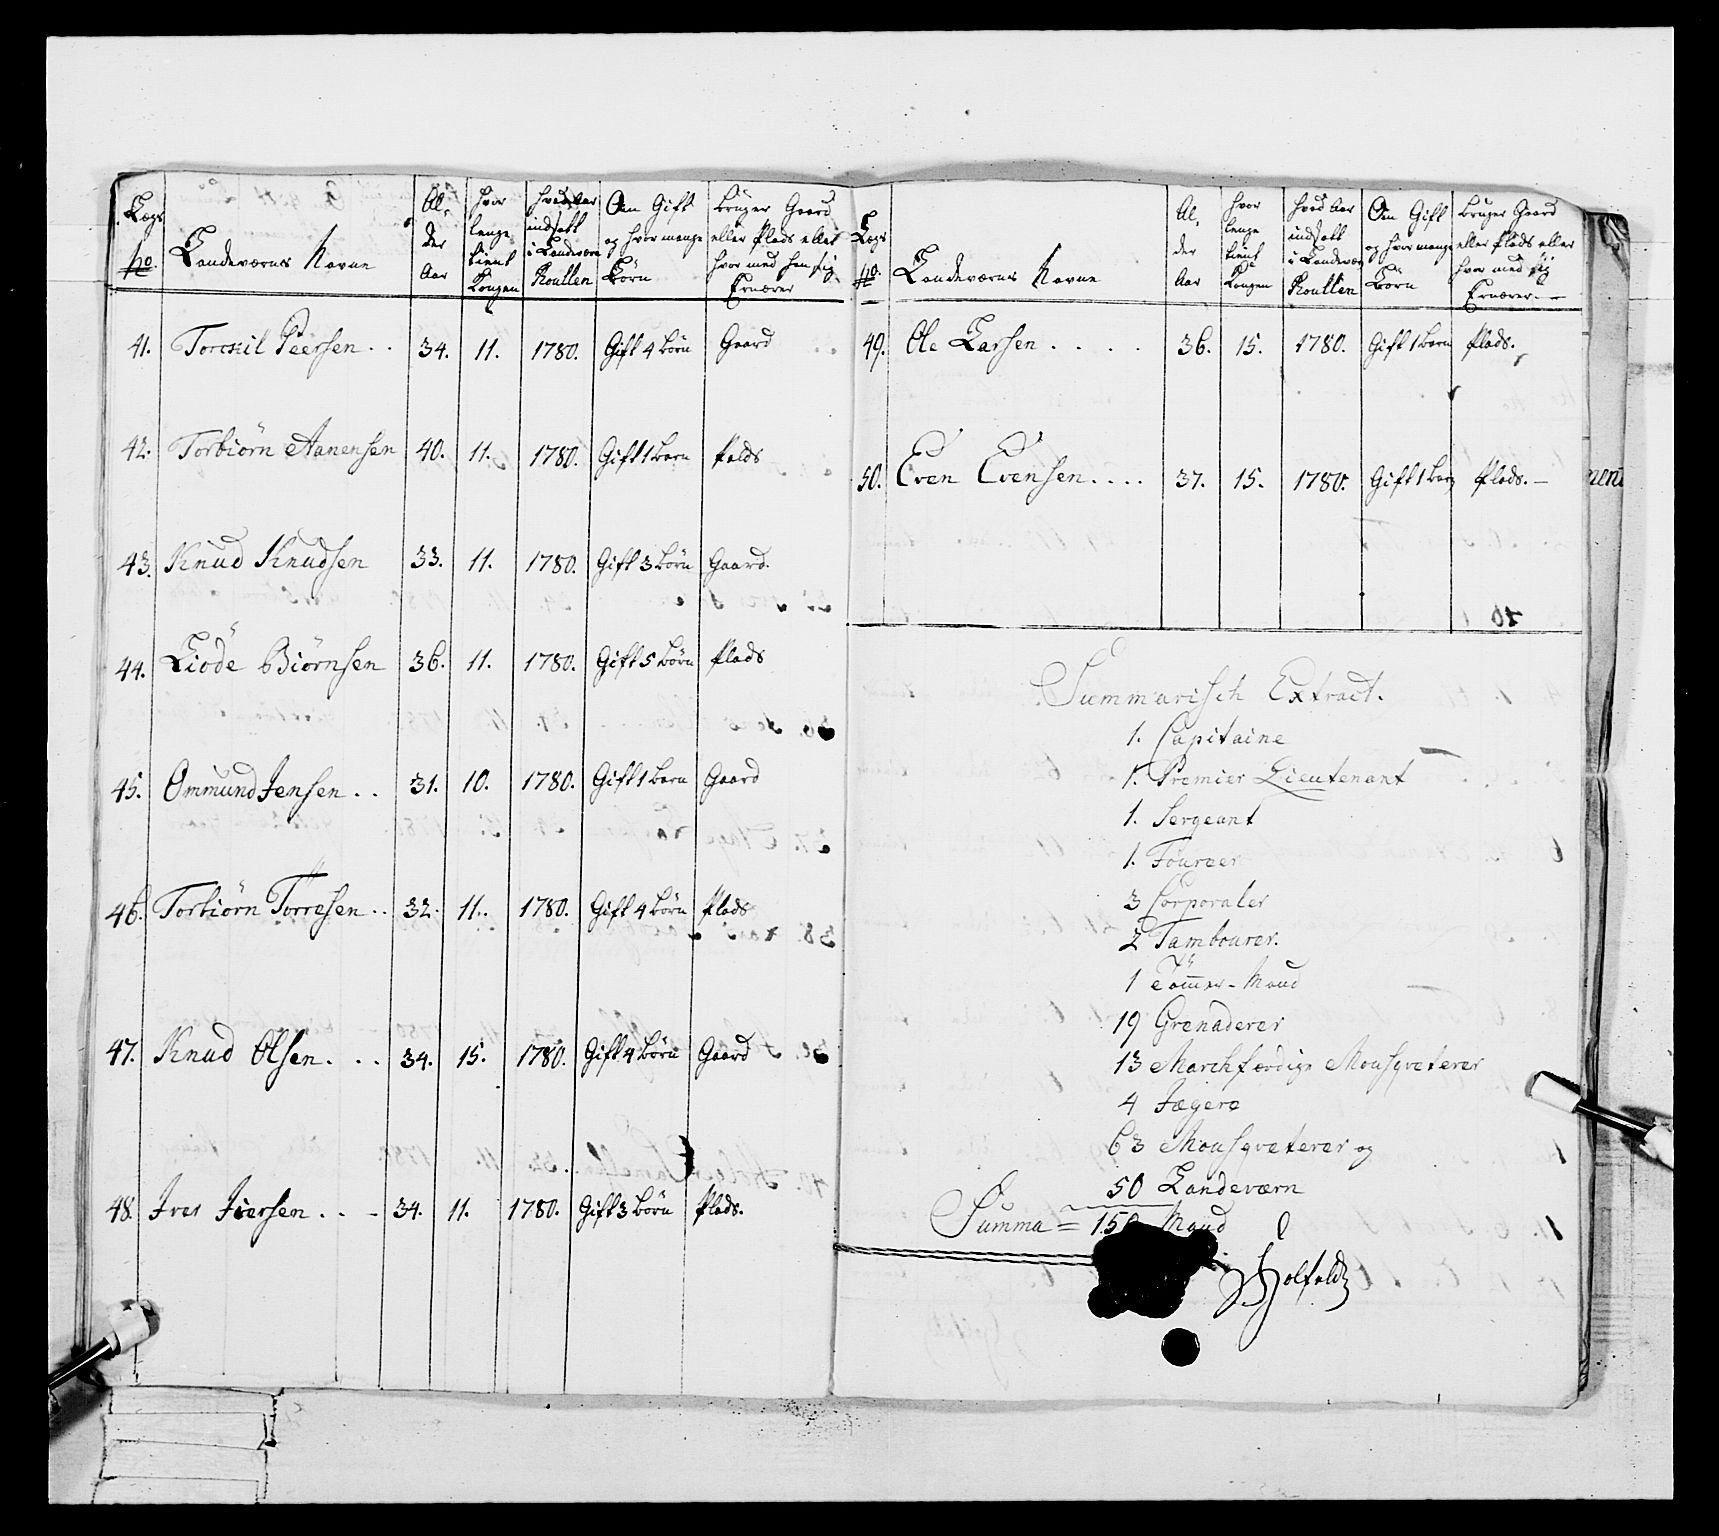 Lægs No. | Landeværns Navne | Al- der Aar | hvor lenge tient Kongen | hvad Aar indsatt i Landeværn Roullen | Om Gift og hvor mange Börn | bruger Gaard eller Plads eller hvor med han sig Ernærer
41. Torckil Peersen . . 34. 11. 1780. Gift 4 börn Gaard
42. Torbiörn Aanensen 40. 11. 1780. Gift 1 barn Palds
43. Knud Knudsen 33. 11. 1780. Gift 3 börn Gaard.
44. Liöde Biörnsen 36. 11. 1780. Gift 5 börn Plads
45. Ommund Jensen . . 31. 10. 1780. Gift 1 barn Gaard
46. Torbiörn Torresen . . 32. 11. 1780. Gift 4 börn Plads
47. Knud Olsen . . . 34. 15. 1780. Gift 4 börn Gaard
48. Iver Iversen . . . 34. 11. 1780. Gift 3 börn Plads.
Lægs No. | Landeværns Navne | Al- der Aar | hvor lenge tient Kongen | hvad Aar indsatt i Landeværn Roullen | Om Gift og hvor mange Börn | bruger Gaard eller Plads eller hvor med sig Ernærer
49. Ole Larsen . . . . 36. 15. 1780. Gift 1 barn Plads.
50. Even Evensen . . . . 37. 15. 1780. Gift 1 barn Plads.
Summarisch Extract.
1. Capitaine
1. Premier Lieutenant
1. Sergeant
1. Foureer
3 Corporaler
2 Tambourer.
1 Tömer-Mand
19 Grenaderer
13 Marchfærdige Mousqveterer
4 Jægere
63 Mousqveterer og
50 Landeværn
Summa = 159 Mand